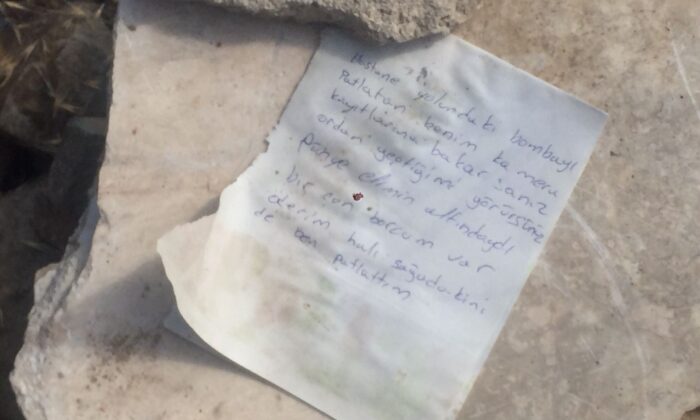 Hastane yolundaki bombayı
Patlatan benim kamera
kayıtlarına bakarsanız
ordan geçtiğimi görürsünüz
Pimye elimin altındaydı
bir can borcum var
öderim halı sağuda-kini
de ben patlattım